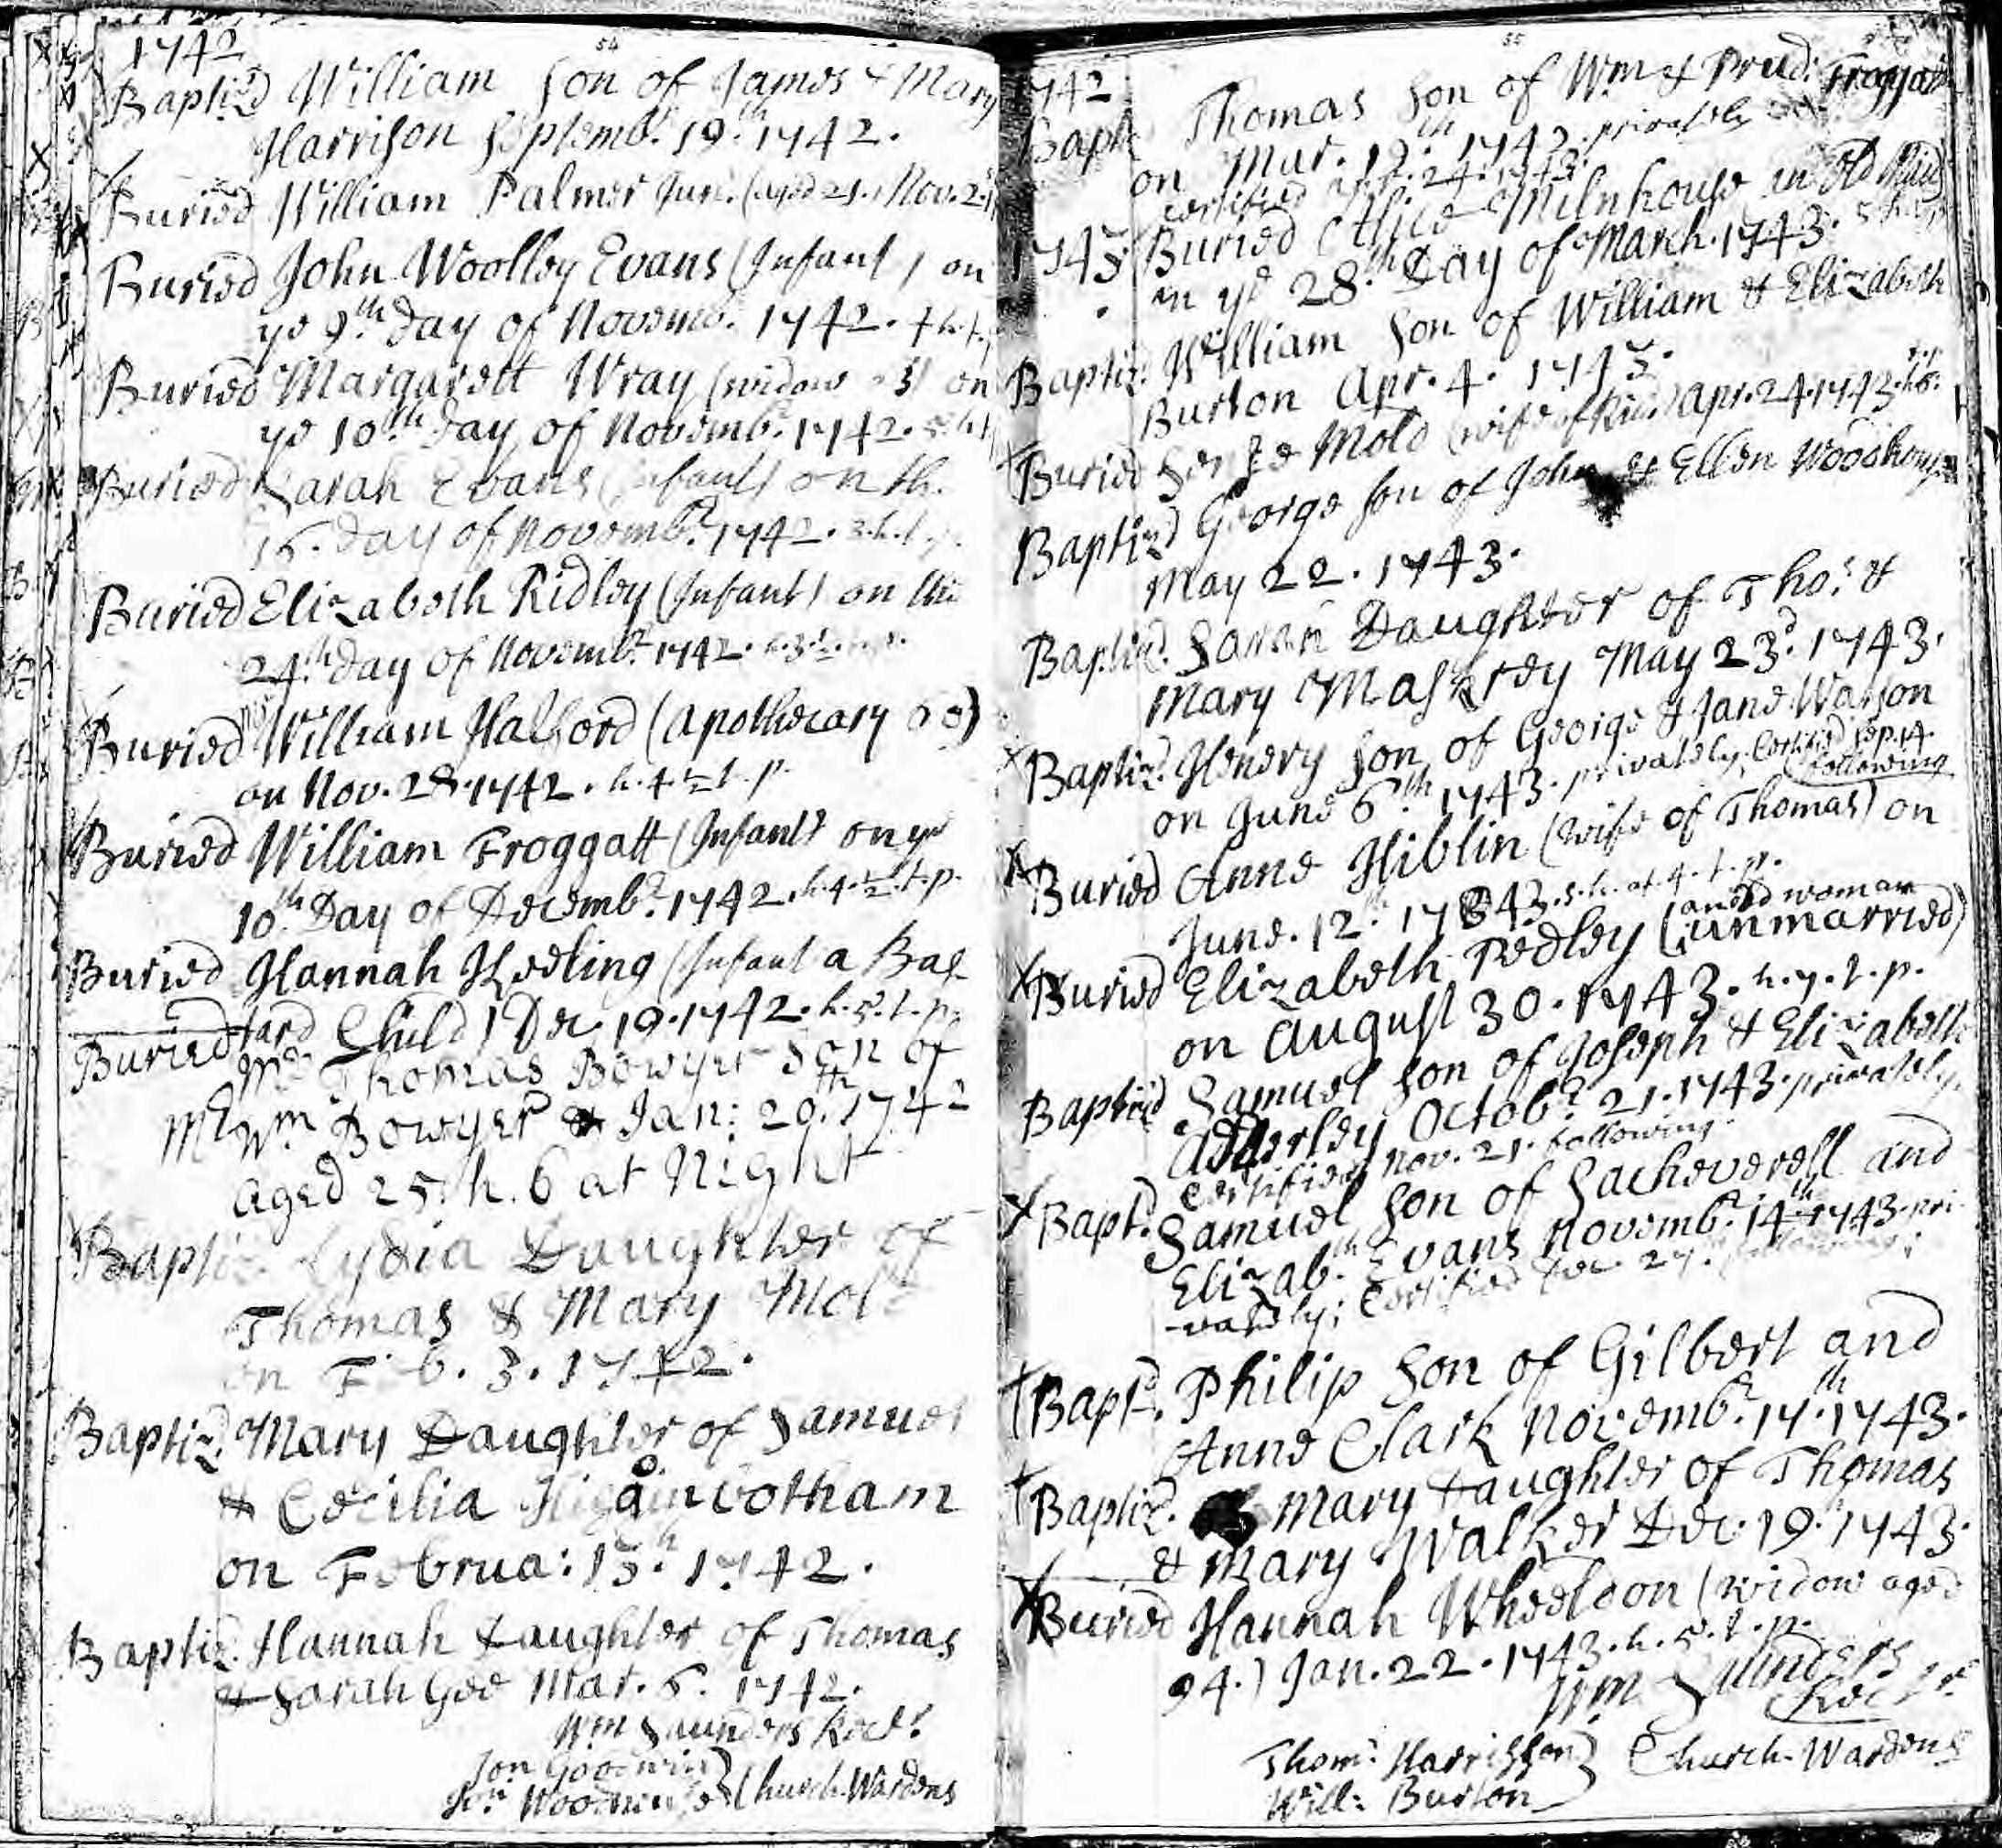 54
1742
Baptiz'd William Son of James & Mary
Harrison Septemb.r 19.th 1742.
Buried William Palmer Jun.r (aged 21.) Nov. 2.
Buried John Woolley Evans (Infant) on
ye 9.th Day of Novemb.r 1742.
Buried Margarett Wray (widow) on
ye 10.th Day of Novemb.r 1742.
Buried Sarah Evans (Infant) on th.
Day of Novemb.r 1742.
Buried Elizabeth Ridley (Infant) on the
24.th Day of Novemb.r 1742.
Buried William Halford (Apothecary
on Nov. 28. 1742. h. 4. ½ t. p.
Buried William Froggatt (Infant) on ye
10.th Day of Decemb.r 1742. h. 4. ½. t. p.
Buried Hannah Keeling (Infant a Bas-
tard Child) Dec. 19. 1742. h. 5. t. p.
Buried Mr Thomas Bowyer Son of
Mr Wm Bowyer Jan: 20.th 1742
aged 25. h. 6 at Night
Baptiz. Lydia Daughter of
Thomas & Mary Mold
on Feb. 3. 1742.
Baptiz. Mary Daughter of Samuel
& Cecilia Higginbotham
on Februa: 15.th 1742.
Baptiz. Hannah Daughter of Thomas
& Sarah Gee Mar. 6. 1742.
Wm Saunders Rect.r
Jon Goodwin
Woodhouse } Church-Wardens
55
1742
Bapt. Thomas Son of Wm & Prud: Froggatt
on Mar. 1742. privately
certified Apr. 24. 1743.
1743 Buried Alice Milnhouse an Old Maid
on ye 28.th Day of March. 1743.
Baptiz. William Son of William & Elizabeth
Burton Apr. 4. 1743.
Buried Mold (wife of Apr. 24. 1743.
Baptiz'd George Son of John & Ellen Woodhouse
May 22. 1743.
Baptiz'd. Sarah Daughter of Tho.s &
Mary Maskrey May 23.d 1743.
Baptiz'd. Henery Son of George & Jane Watson
on June 6.th 1743. privately; Certified Sep. 14.
following
Buried Anne Hiblin (wife of Thomas) on
June. 12.th 1743. s. h. at. 4. t. p.
Buried Elizabeth Pedley (an old woman
unmarried)
on August 30. 1743. h. 7. t. p.
Baptiz'd Samuel Son of Joseph & Elizabeth
Adderley Octob.r 21. 1743. privately.
Certified Nov. 21. following.
Bapt'd. Samuel Son of Sacheverell and
Elizab.th Evans Novemb.r 14.th 1743. pri-
-vately; Certified Dec. 27. following;
Bapt'd. Philip Son of Gilbert and
Anne Clark Novemb.r 17.th 1743.
Baptiz'd. Mary Daughter of Thomas
& Mary Walker Dec. 19. 1743.
Buried Hannah Wheeldon (widow aged
94.) Jan. 22. 1743. h. 5. t. p.
Wm Saunders
Rect.r
Thom: Harrisson
Will: Burton } Church-Wardens